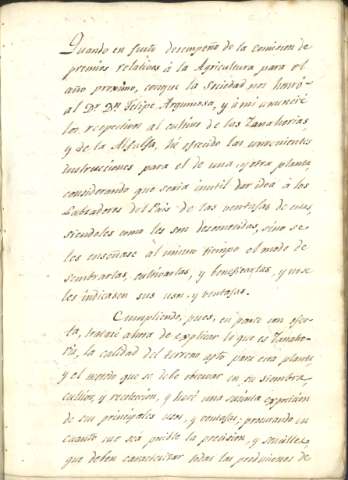 Quando en justo desempeño de la Comision de
premios relativos à la Agricultura para el
año proximo, conque la Sociedad nos honró
al Dr. Dn. Felipe Argumosa, y à mi anuncié
los respectivos al cultivo de las Zanahorias,
y de la Alfalfa, hé ofrecido las convenientes
instrucciones para el de una y otra planta,
considerando que seria inutil dar idea à los
Labradores del Pais de las ventajas de
siendoles como les son desconocidas, sino se
les enseñase al mismo tiempo el modo de
sembrarlas, cultivarlas, y beneficiarlas, y no se
les indicasen sus usos y ventajas.
Cumpliendo, pues, en parte con
ta, trataré ahora de explicar lo que es Zanaho-
ria, la calidad del terreno apto para esta planta
y el metodo que se debe observar en su siembra,
cultivo, y recoleccion, y haré una sucinta exposicion
de sus principales usos, y ventajas; procurando en
cuanto me sea posible la precision, y sencillez
que deben caracterizar todas las producciones de